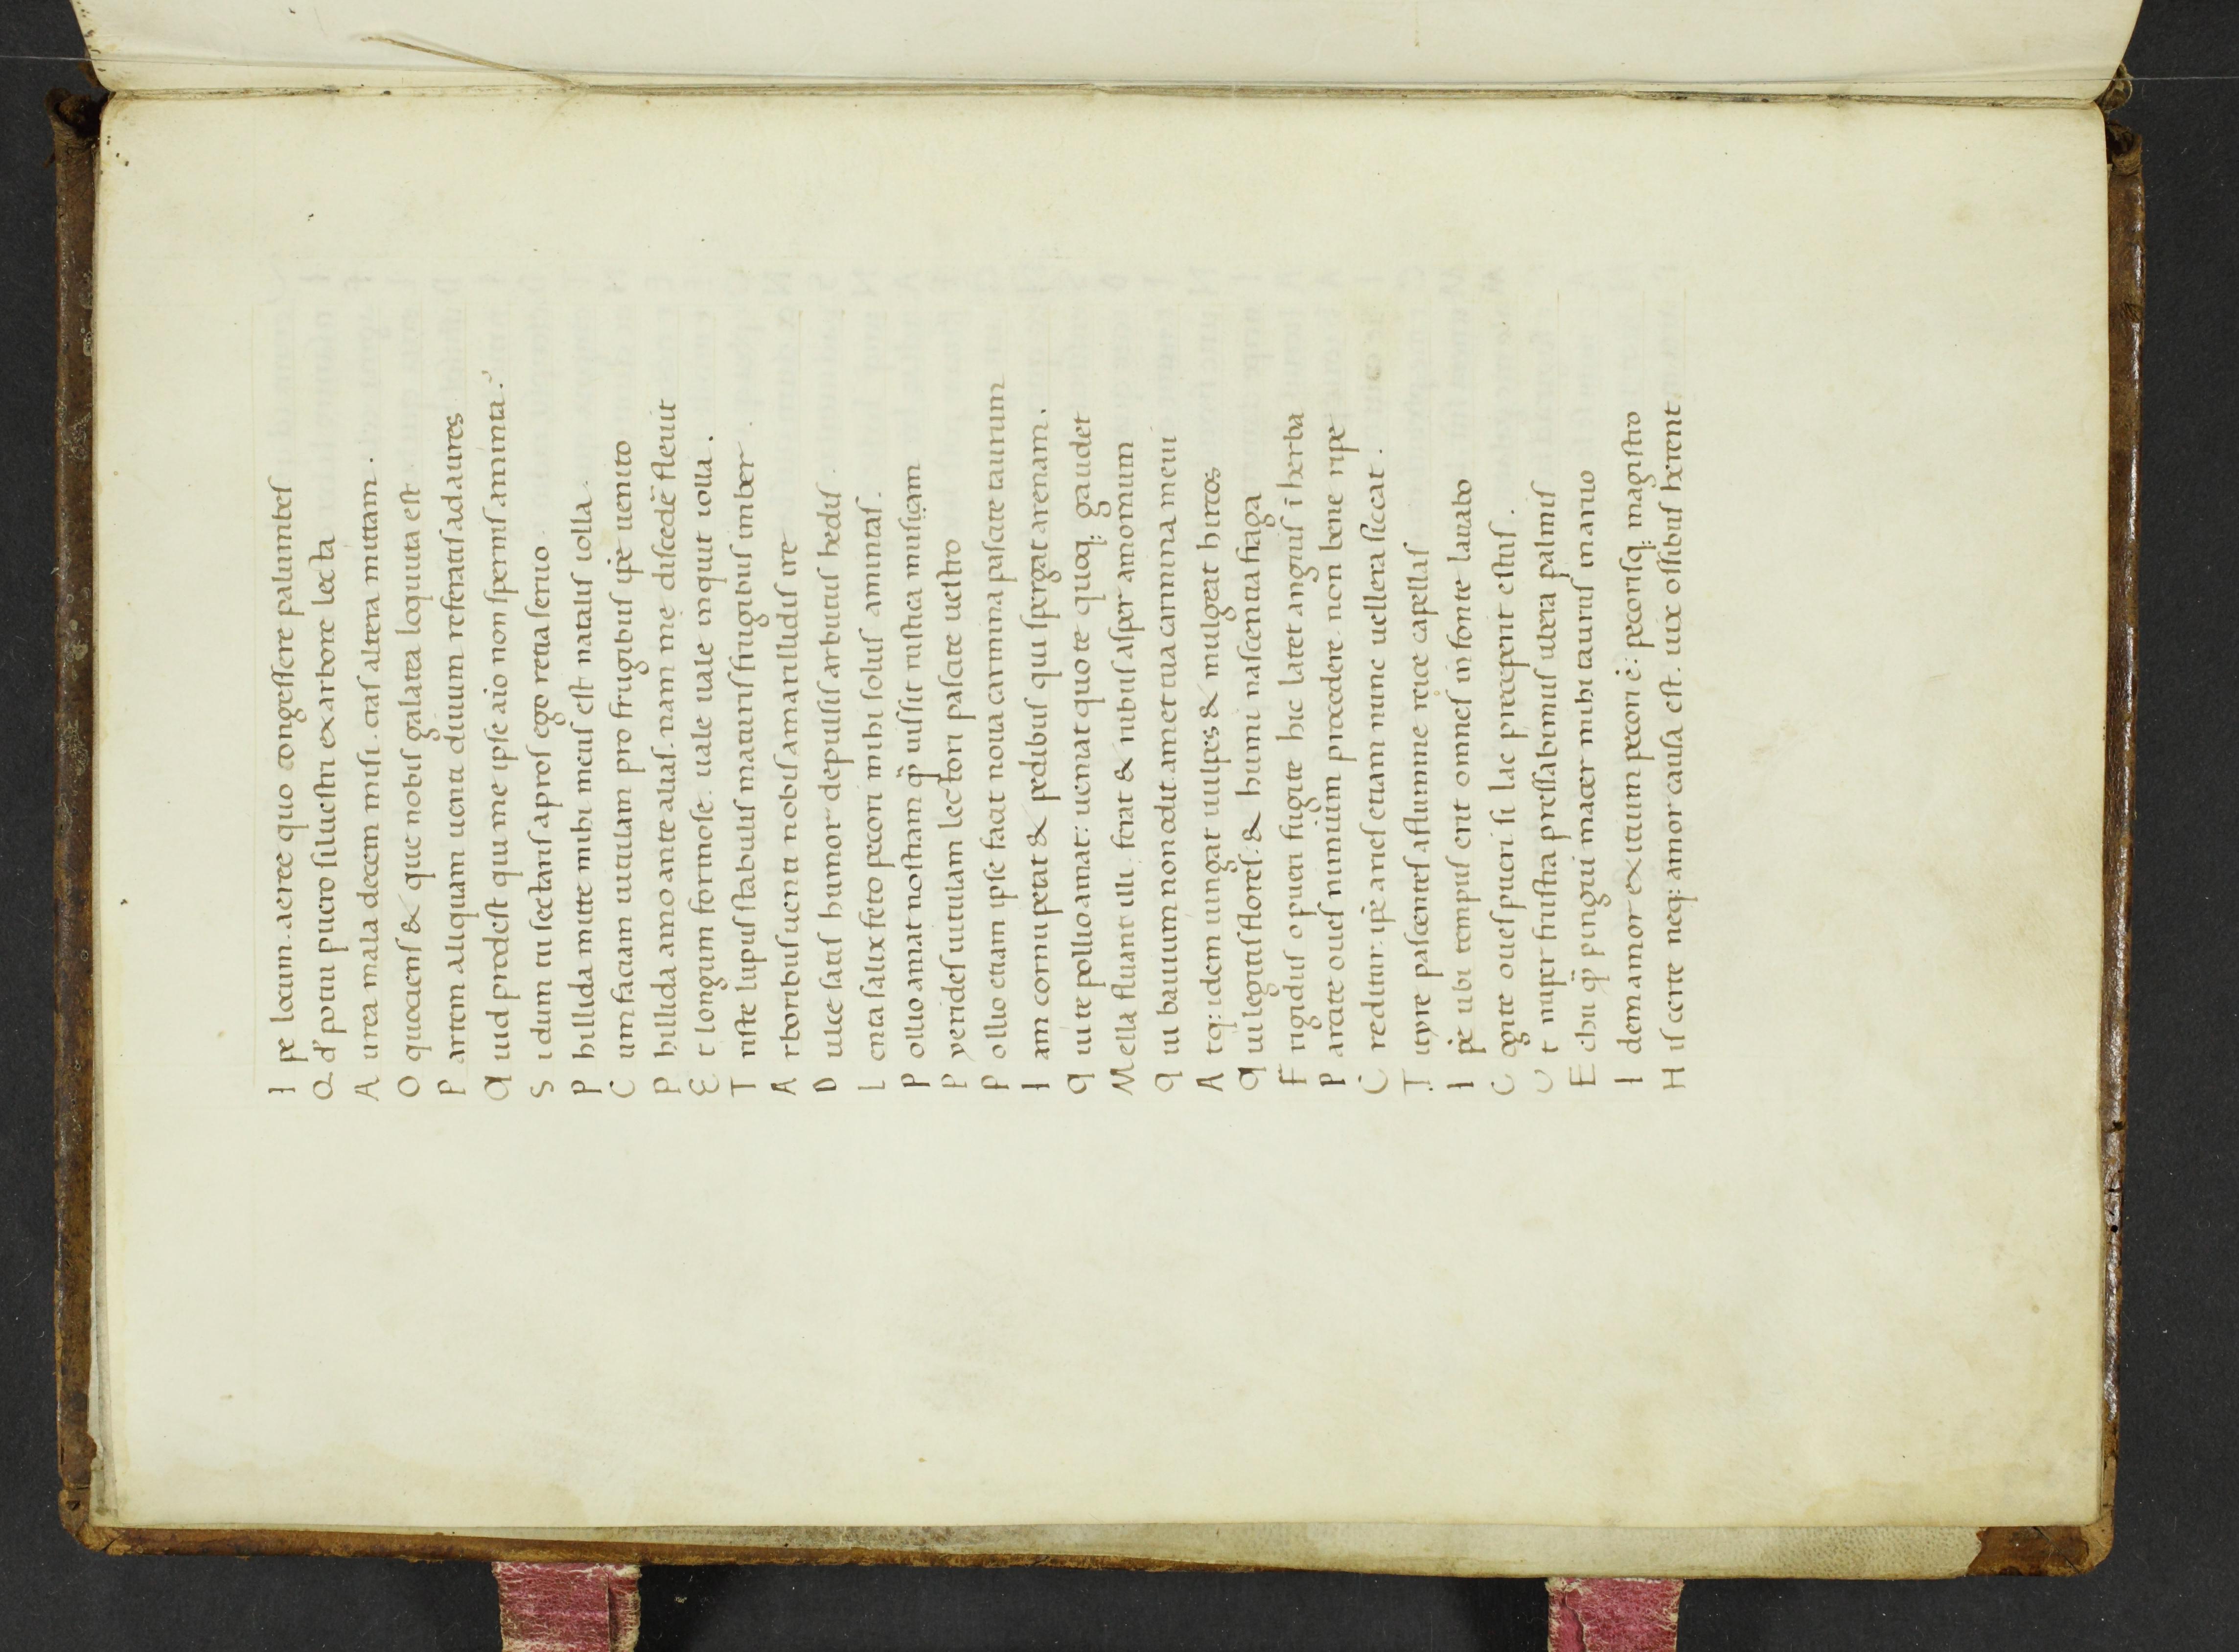 I pſe locum. aereę quo congeſſere palumbeſ
Q ď potui puero ſilueſtri ex arbore lecta
A urea mala decem miſi. craſ altera mittam.
O quocienſ & que nobiſ galatea loquuta eſt
P artem aliquam uenti diuum referatiſ ad aures
Q uid prodeſt qui me ipſe aio non ſperniſ aminta.
S i dum tu ſectariſ aproſ ego retia ſeruo.
P hillida mitte mihi meuſ eſt nataliſ iolla.
C um faciam uitulam pro frugibuſ ip̄e uenito
P hillida amo ante aliaſ. nam mę diſcedē fleuit
E t longum formoſe. uale uale inquit iolla.
T riſte lupuſ ſtabuliſ maturiſ frugibuſ imber.
A rboribuſ uenti nobiſ amarillidiſ ire
D ulce ſatiſ humor depulſiſ arbutuſ hediſ.
L enta ſalix feto pecori mihi ſoluſ amintaſ.
P ollio amat noſtram q̄ uiſſit ruſtica muſicam
P yerideſ uitulam lectori paſcite ueſtro
P ollio etiam ipſe facit noua carmina paſcite taurum
I am cornu petat & pedibuſ qui ſpergat arenam.
Q ui te pollio amat: ueniat quo te quoq; gaudet
M ella fluant illi. ferat & rubuſ aſper amomum
Q ui bauium non odit. amet tua carmina meui
A tq; idem iungat uulpes & mulgeat hircos
Q ui legitiſ floreſ. & humi naſcentia fraga
F rigiduſ o pueri fugite hic latet anguiſ ī herba
P arcite oueſ nimium procedere. non bene ripe
C reditur. ip̄e arieſ etiam nunc uellera ſiccat.
T ityre paſcenteſ a flumine reice capellaſ
I p̄e ubi tempuſ erit omneſ in fonte lauabo
C ogite oueſ pueri ſi lac preceperit eſtuſ.
U t nuper fruſtra preſſabimuſ ubera palmiſ
E chu q̄ pingui macer mihi tauruſ in aruo
I dem amor exitium pecori ē: pecoriſq; magiſtro
H iſ certe neq; amor cauſa eſt. uix oſſibuſ herent